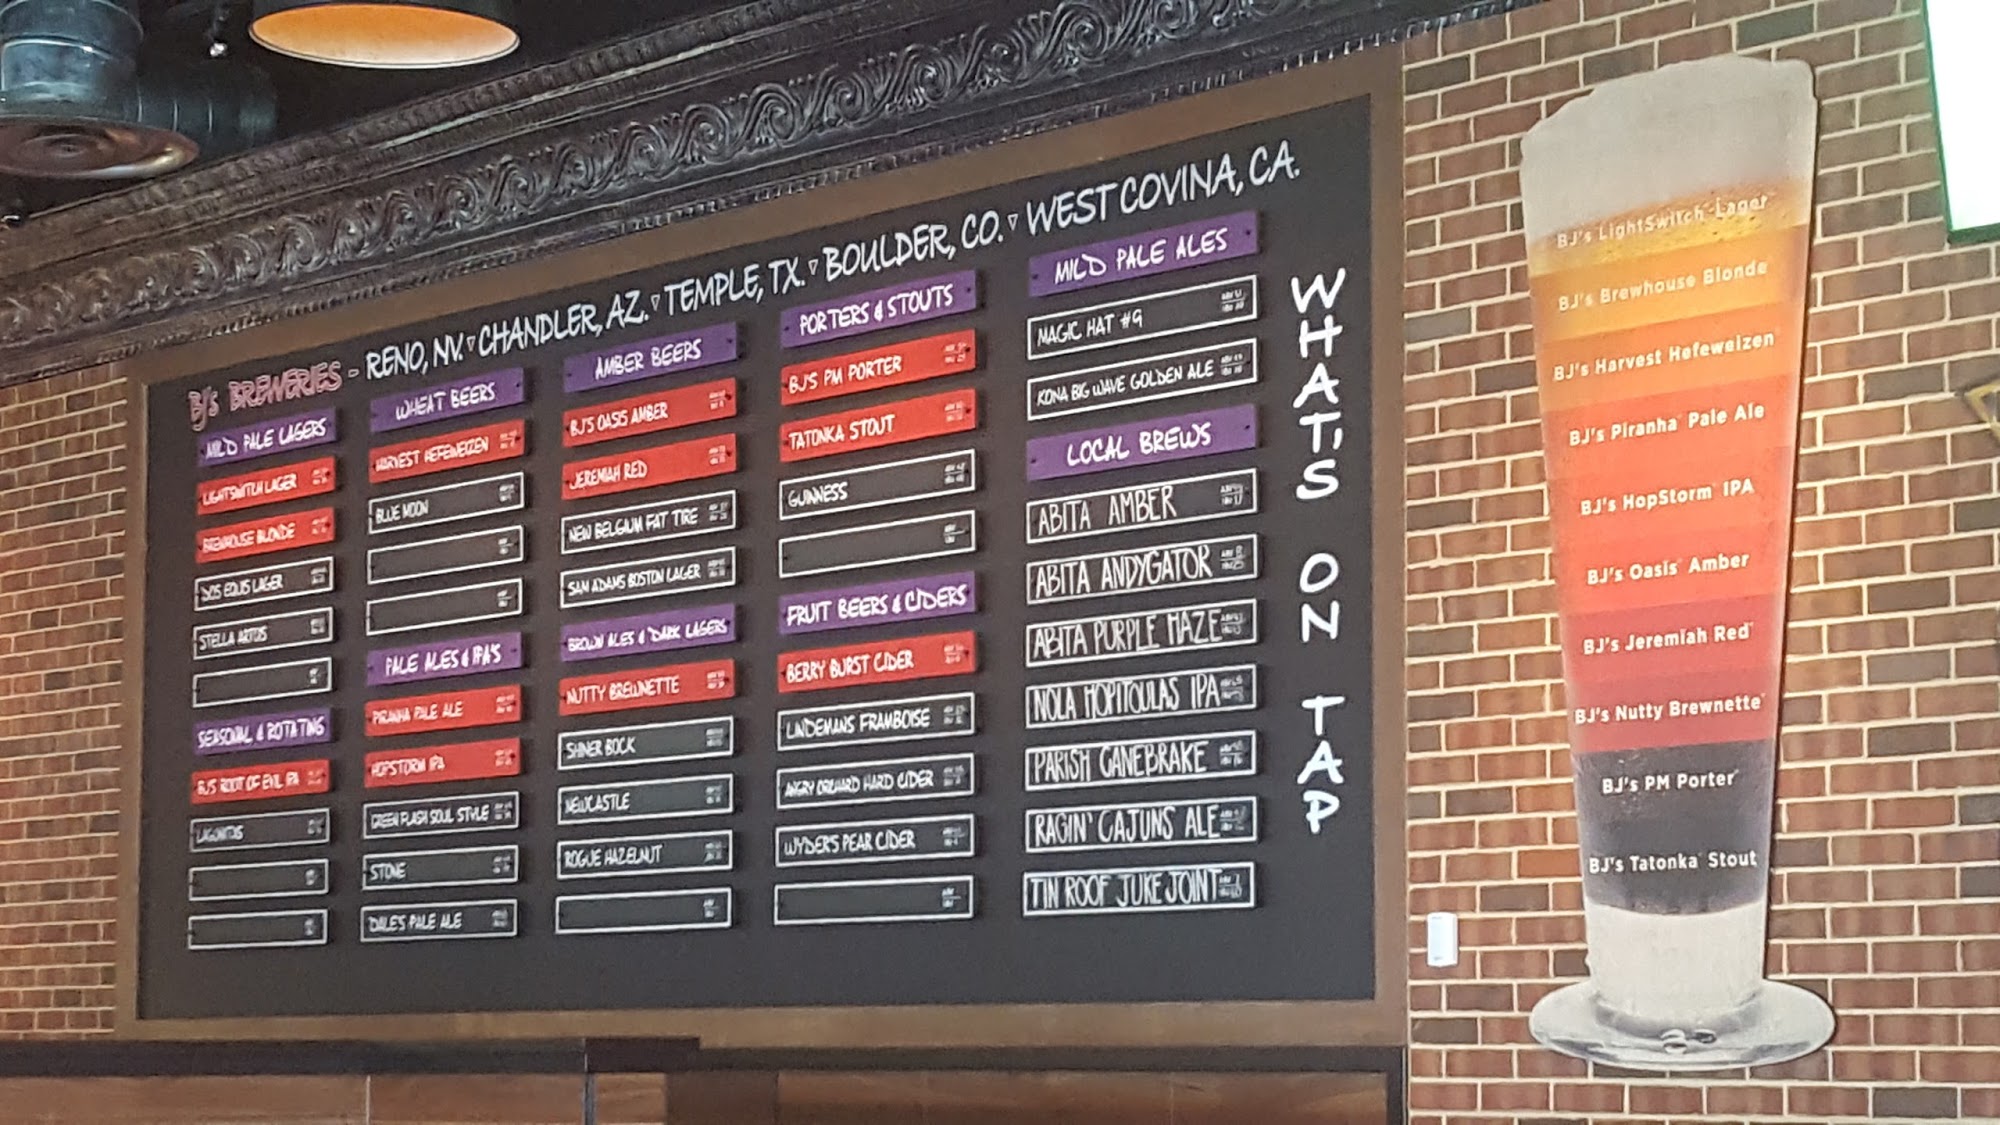 BJ's BREWERIES - RENO, NV. ▿ CHANDLER, AZ. ▿ TEMPLE, TX. ▿ BOULDER, CO. ▿ WEST COVINA, CA.
MILD PALE LAGERS
LIGHTSWITCH LAGER
BREWHOUSE BLONDE
DOS EQUIS LAGER
STELLA ARTOIS
SEASONAL & ROTATING
BJ'S ROOT OF EVIL IPA
LAGUNITAS
WHEAT BEERS
HARVEST HEFEWEIZEN
BLUE MOON
PALE ALES & IPA'S
PIRANHA PALE ALE
HOPSTORM IPA
GREEN FLASH SOUL STYLE
STONE
DALE'S PALE ALE
AMBER BEERS
BJ'S OASIS AMBER
JEREMIAH RED
NEW BELGIUM FAT TIRE
SAM ADAMS BOSTON LAGER
BROWN ALES & DARK LAGERS
NUTTY BREWNETTE
SHINER BOCK
NEWCASTLE
ROGUE HAZELNUT
PORTERS & STOUTS
BJ'S PM PORTER
TATONKA STOUT
GUINNESS
FRUIT BEERS & CIDERS
BERRY BURST CIDER
LINDEMANS FRAMBOISE
ANGRY ORCHARD HARD CIDER
WYDER'S PEAR CIDER
MILD PALE ALES
MAGIC HAT #9
KONA BIG WAVE GOLDEN ALE
LOCAL BREWS
ABITA AMBER
ABITA ANDYGATOR
ABITA PURPLE HAZE
NOLA HOPITOULAS IPA
PARISH CANEBRAKE
RAGIN' CAJUNS ALE
TIN ROOF JUKE JOINT
WHAT'S ON TAP
BJ's LightSwitch Lager
BJ's Brewhouse Blonde
BJ's Harvest Hefeweizen
BJ's Piranha Pale Ale
BJ's HopStorm IPA
BJ's Oasis Amber
BJ's Jeremiah Red
BJ's Nutty Brewnette
BJ's PM Porter
BJ's Tatonka Stout